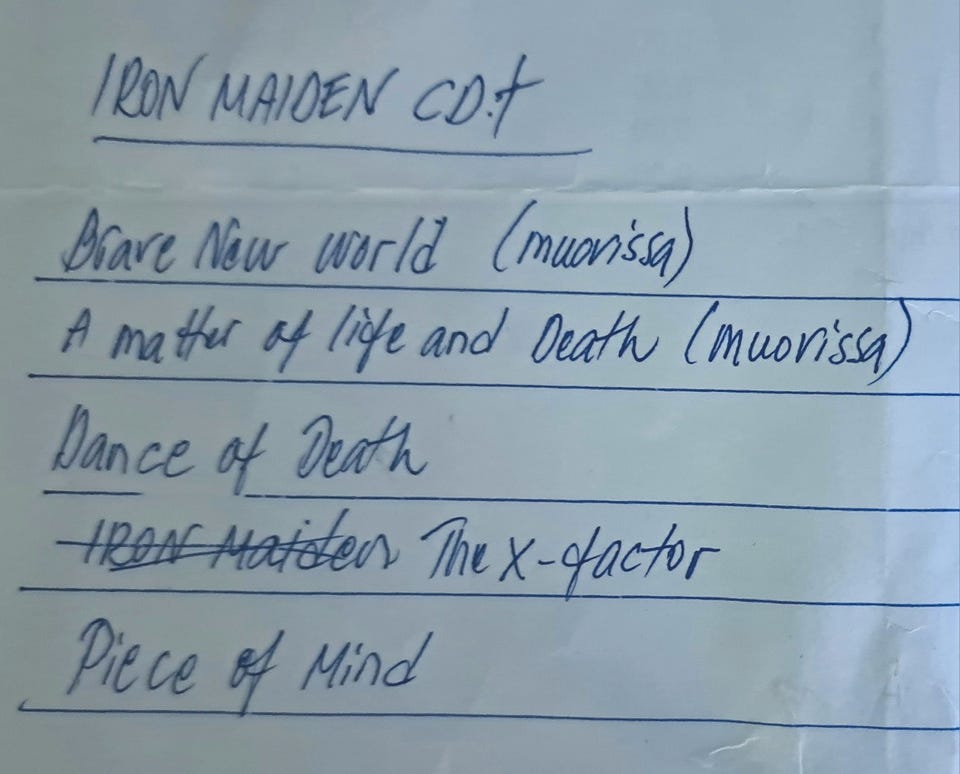 IRON MAIDEN CD:t
Brave New World (muovissa)
A matter of life and Death (muovissa)
Dance of Death
IRON Maiden The X-factor
Piece of Mind